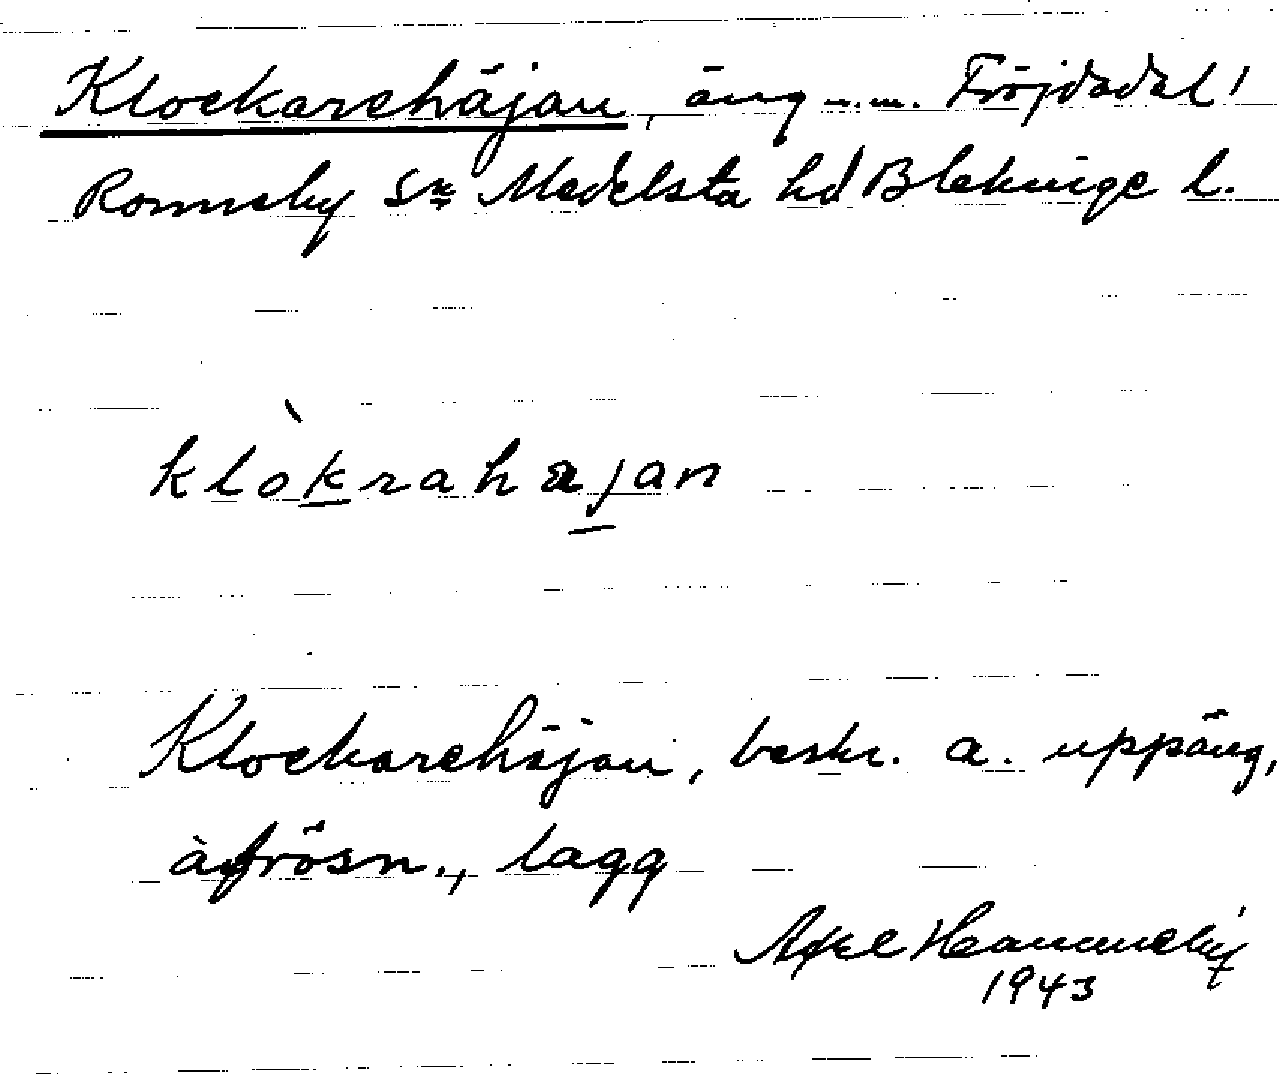 Klockarehäjan, äng n.m. Fröjdadal!
Ronneby Sn Medelsta hd Blekinge l.
klòkrahajan
Klockarehäjan, beskr. a. uppäng,
lagg
Axel
1943